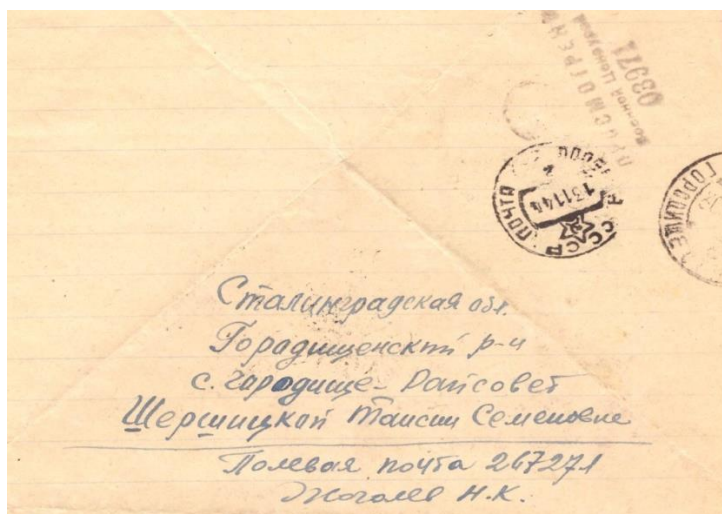 ПРОСМОТРЕНО
Военной Цензурой
03971
ПОЧТА
13 11 44
СССР
ГОРОДИЩЕ
Сталинградская обл.
Горадищенский р-н
с. городище - Райсовет
Шершицкой Таисии Семеновне
Полевая почта 267271
Жоголев Н.К.